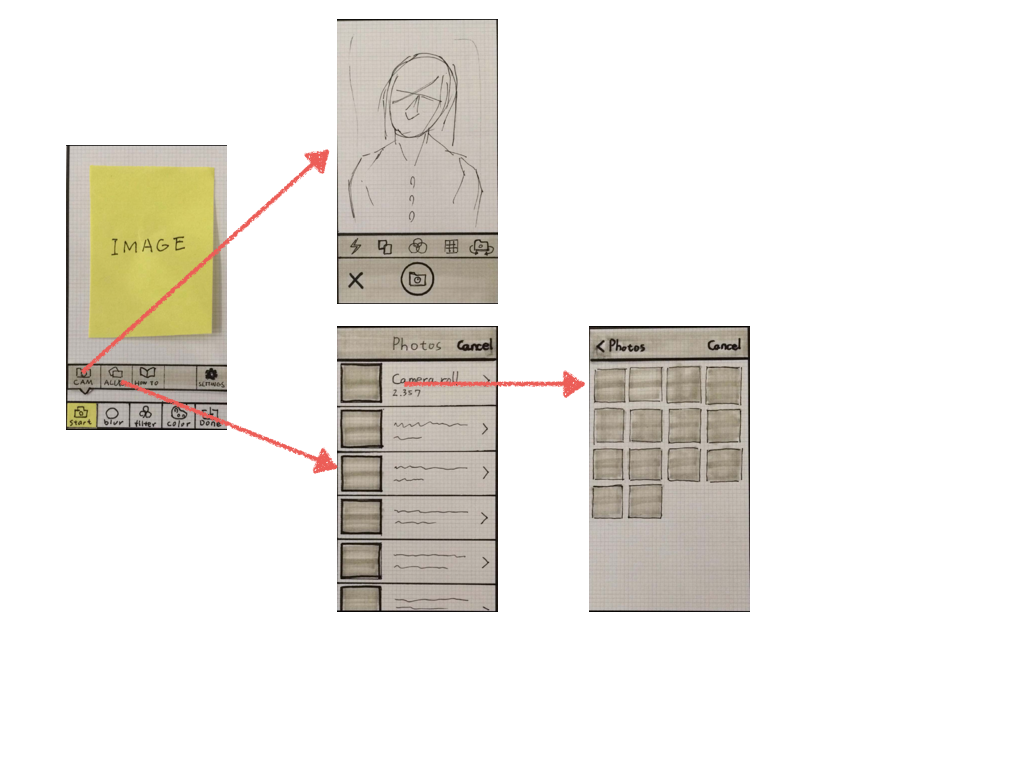 IMAGE
CAM
HOW TO
SETTINGS
start
blur
filter
color
Done
Photos Cancel
Camera roll
2.357
Photos Cancel